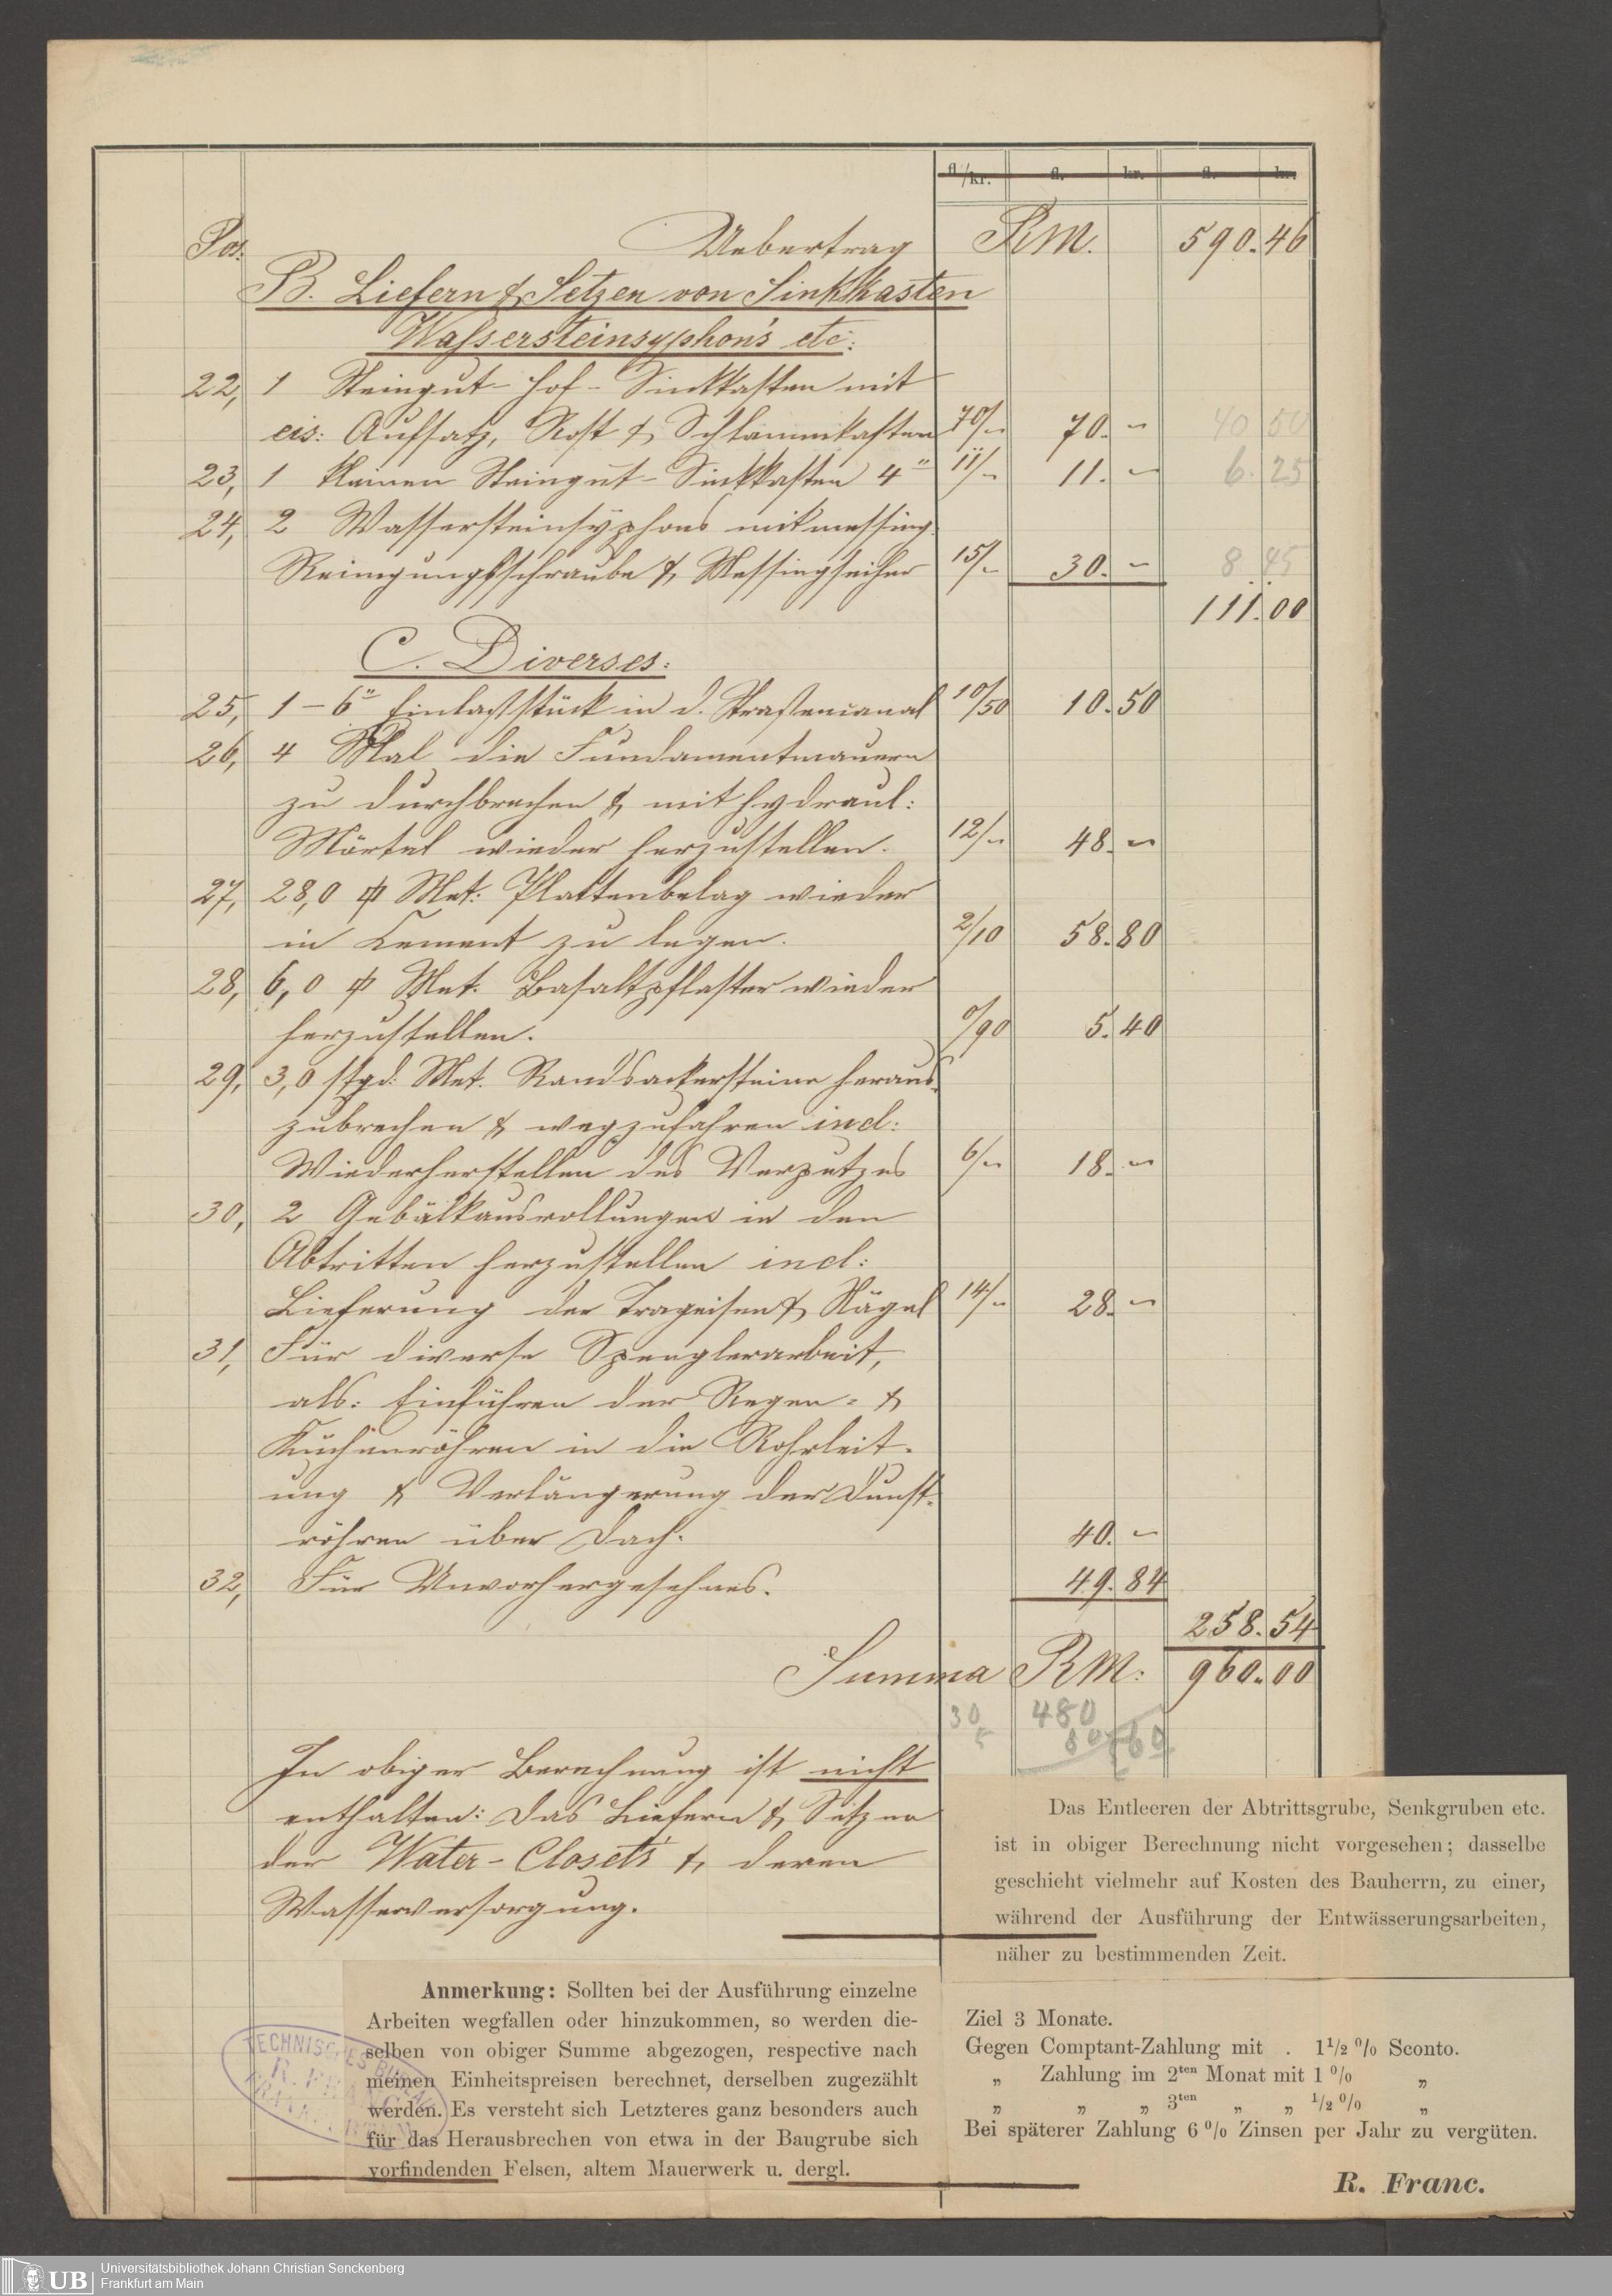 fl./kr. fl. kr. fl. kr.
Pos. Uebertrag RM. 590.46
B. Liefern & Setzen von Sinkkasten
Wassersteinsyphon's etc:
22, 1 Steingut-Hof-Sinkkasten mit
eis: Aufsatz, Rost & Schlammkasten 70/– 70. – 40 50
23, 1 kleinen Steingut-Sinkkasten 4" 11/– 11. – 6. 25
24, 2 Wassersteinsyphons mit messing
Reinigungsschraube & Messingseiher 15/– 30. – 8 45
111.00
C. Diverses:
25, 1 – 6" Einlaßstück in d. Straßencanal 10/50 10.50
26, 4 Mal die Fundamentmauern
zu durchbrechen & mit hydraul:
Mörtel wieder herzustellen. 12/– 48. –
27, 28,0 φ Met: Plattenbelag wieder
in Cement zu legen. 2/10 58.80
28, 6,0 φ Met. Basaltpflaster wieder
herzustellen. 0/90 5.40
29, 3,0 stgd: Met. Sandsackersteine heraus
zubrechen & wegzufahren incl:
Wiederherstellen des Verputzes 6/– 18. –
30, 2 Gebälkausrollungen in den
Abtritten herzustellen incl:
Lieferung der Trageisen & Nägel 14/– 28. –
31, Für diverse Spenglerarbeit,
als: Einführen der Regen- &
Küchenröhren in die Rohrleit-
ung & Verlängerung der Dunst-
röhren über Dach. 40. –
32, Für Unvorhergesehnes. 49.84
258.54
Summa RM: 960.00
30 480
In obiger Berechnung ist nicht
enthalten: das Liefern & Setzen
der Water-Closets & deren
Wasserversorgung.
Das Entleeren der Abtrittsgrube, Senkgruben etc.
ist in obiger Berechnung nicht vorgesehen; dasselbe
geschieht vielmehr auf Kosten des Bauherrn, zu einer,
während der Ausführung der Entwässerungsarbeiten,
näher zu bestimmenden Zeit.
Anmerkung: Sollten bei der Ausführung einzelne
Arbeiten wegfallen oder hinzukommen, so werden die-
selben von obiger Summe abgezogen, respective nach
meinen Einheitspreisen berechnet, derselben zugezählt
werden. Es versteht sich Letzteres ganz besonders auch
für das Herausbrechen von etwa in der Baugrube sich
vorfindenden Felsen, altem Mauerwerk u. dergl.
TECHNISCHES BUREAU
Ziel 3 Monate.
Gegen Comptant-Zahlung mit . 1 1/2 % Sconto.
„ Zahlung im 2ten Monat mit 1 % „
„ „ „ 3ten „ „ 1/2 % „
Bei späterer Zahlung 6 % Zinsen per Jahr zu vergüten.
R. Franc.
UB Universitätsbibliothek Johann Christian Senckenberg
Frankfurt am Main